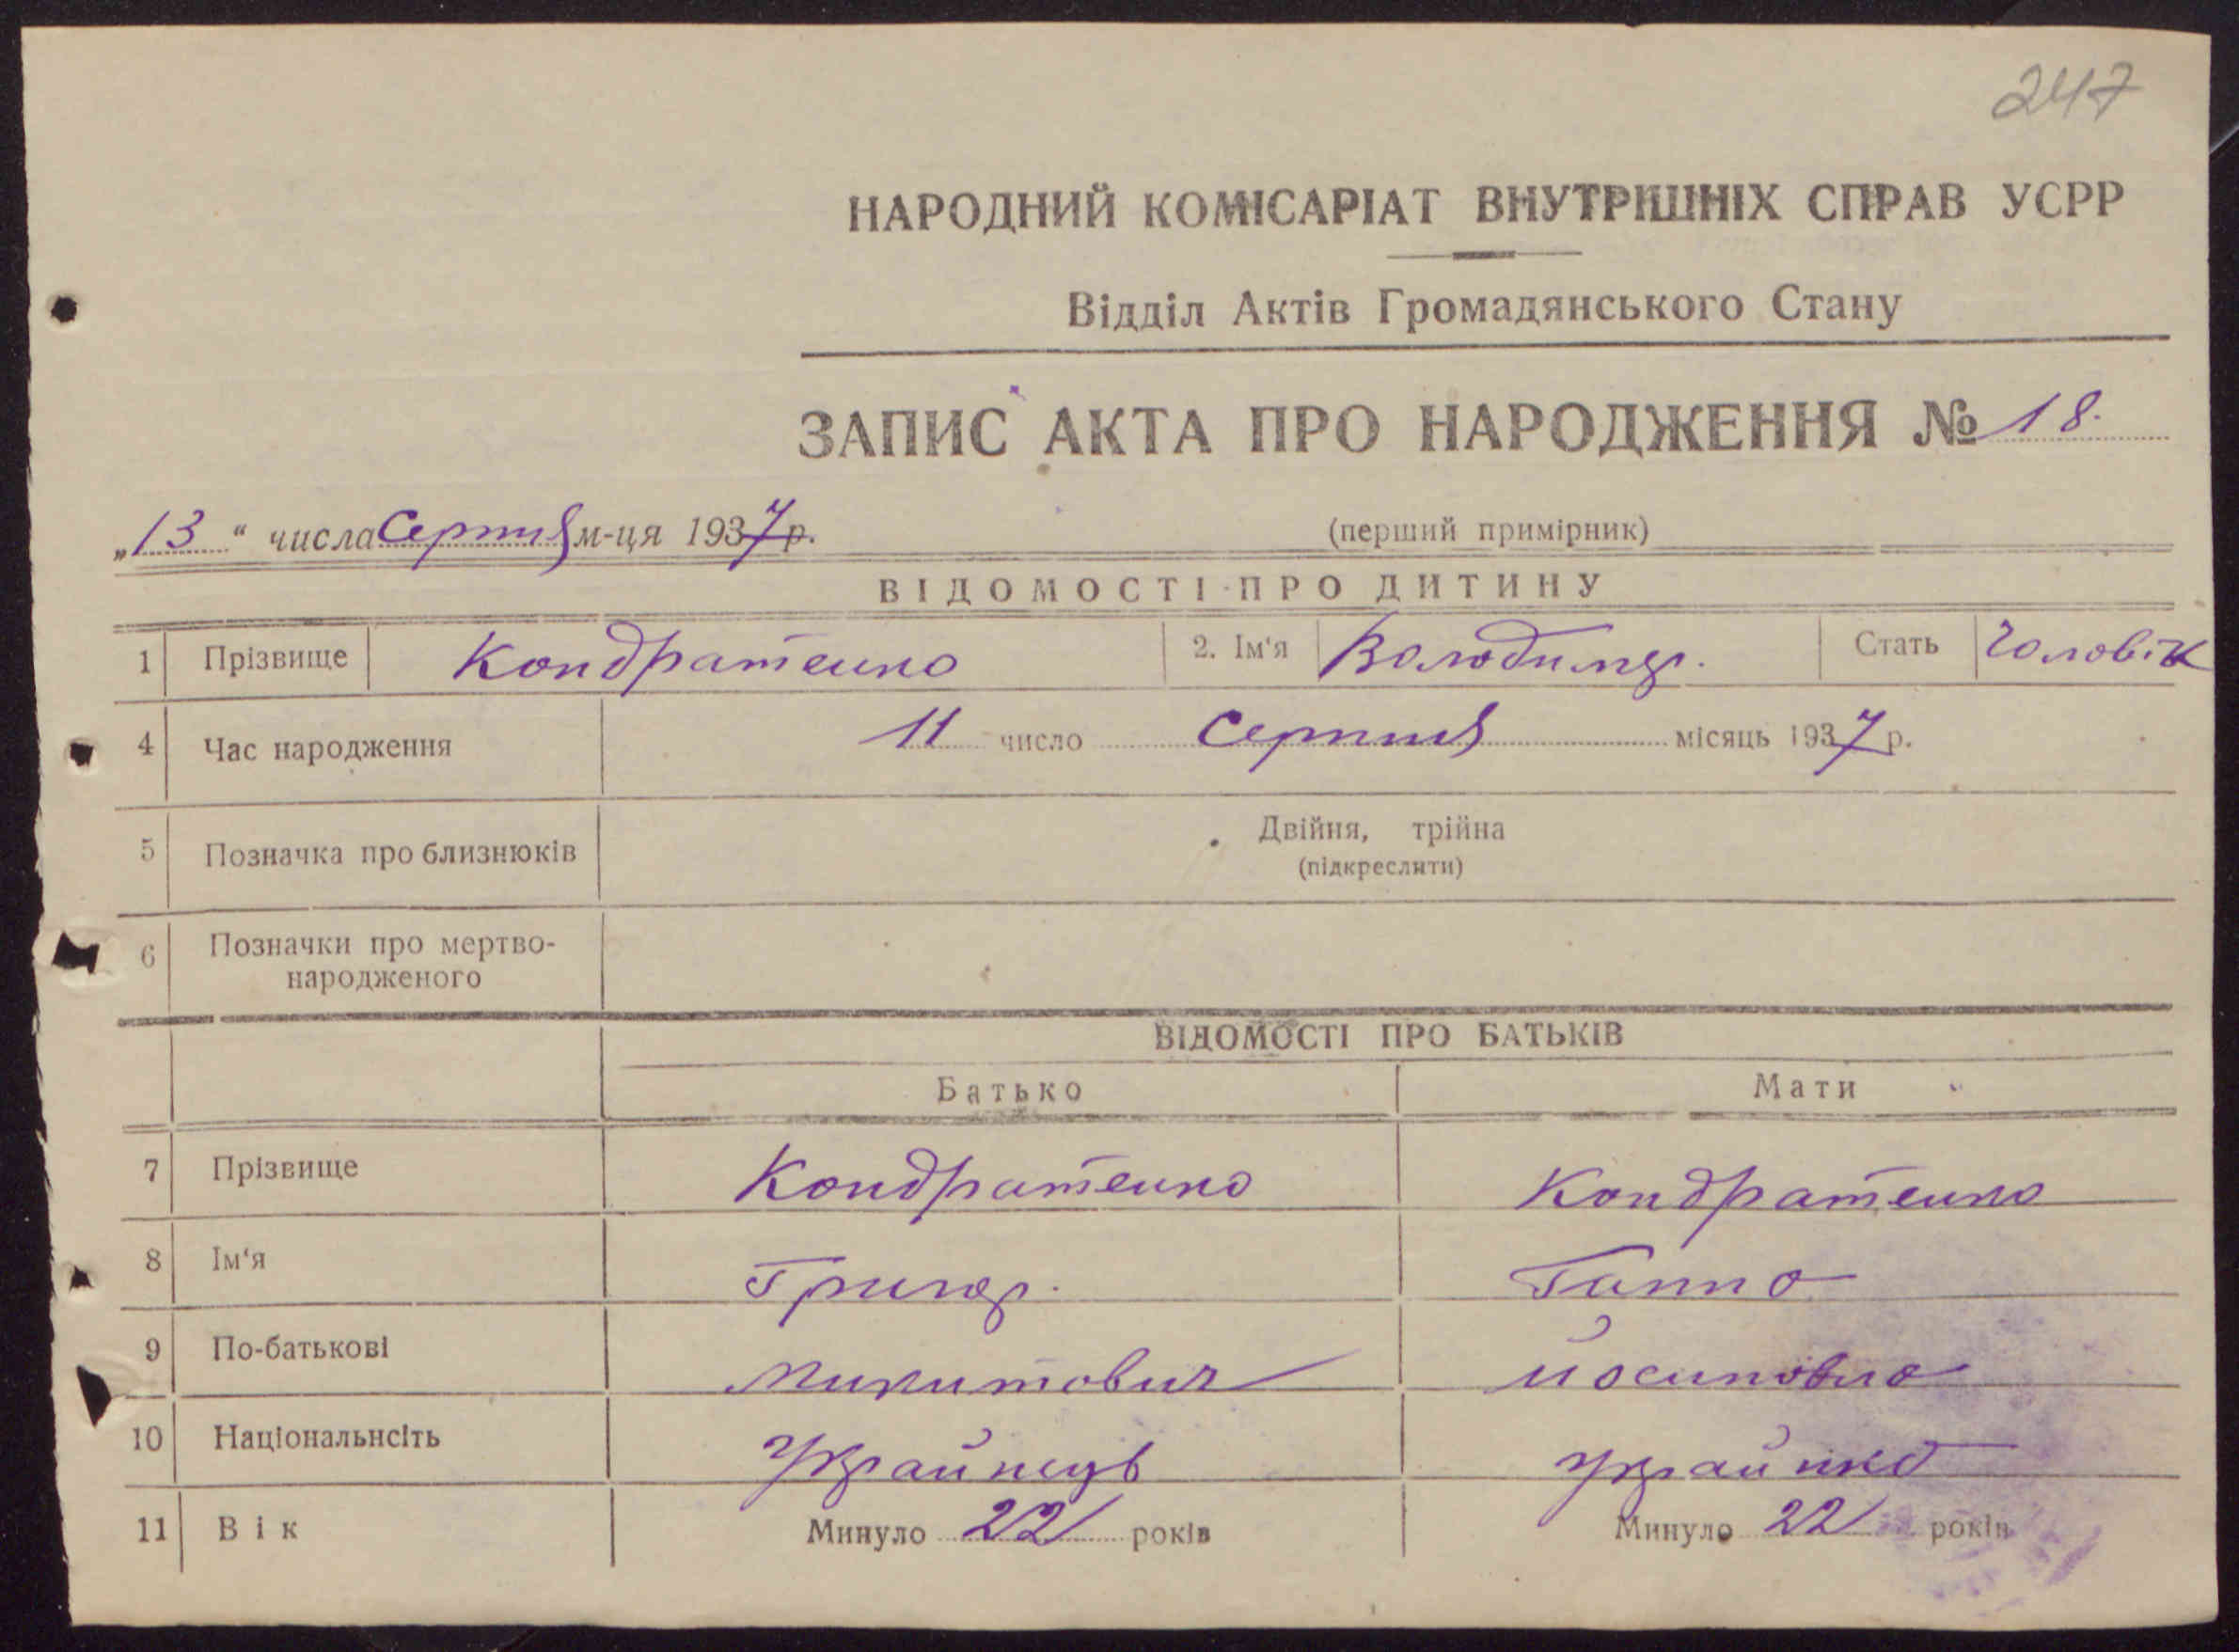 247
НАРОДНИЙ КОМІСАРІАТ ВНУТРІШНІХ СПРАВ УСРР
Відділ Актів Громадянського Стану
ЗАПИС АКТА ПРО НАРОДЖЕННЯ № 18.
„13“ числа Серпня м-ця 1937 р. (перший примірник)
ВІДОМОСТІ ПРО ДИТИНУ
1 Прізвище Кондратенко 2. Ім‘я Володимир. Стать Чоловік
4 Час народження 11 число Серпня місяць 1937 р.
5 Позначка про близнюків Двійня, трійна
(підкреслити)
6 Позначки про мертво-
народженого
ВІДОМОСТІ ПРО БАТЬКІВ
Батько Мати
7 Прізвище Кондратенко Кондратенко
8 Ім‘я Григор. Ганна
9 По-батькові Микитович Йосиповна
10 Національнсіть Українець Українка
11 Вік Минуло 22 років Минуло 22 років